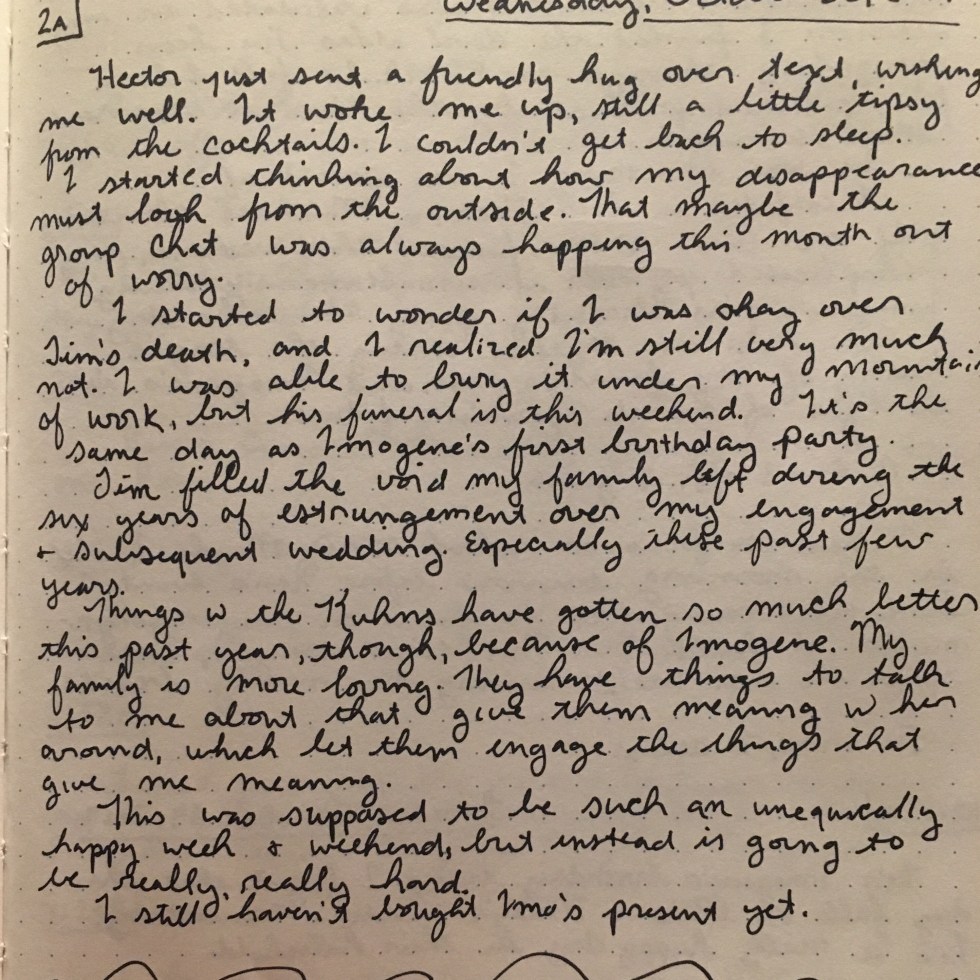 2A
Wednesday, October
Hector just sent a friendly hug over text, wishing
me well. It woke me up, still a little tipsy
from the cocktails. I couldn't get back to sleep.
I started thinking about how my disappearance
must look from the outside. That maybe the
group chat was always happening this month out
of worry.
I started to wonder if I was okay over
Jim's death, and I realized I'm still very much
not. I was able to bury it under my mountain
of work, but his funeral is this weekend. It's the
same day as Imogene's first birthday party.
Jim filled the void my family left during the
six years of estrangement over my engagement
+ subsequent wedding. Especially these past few
years.
Things w the Kuhns have gotten so much better
this past year, though, because of Imogene. My
family is more loving. They have things to talk
to me about that give them meaning w her
around, which let them engage the things that
give me meaning.
This was supposed to be such an unequivically
happy week & weekend, but instead is going to
be really, really hard.
I still haven't bought Imo's present yet.